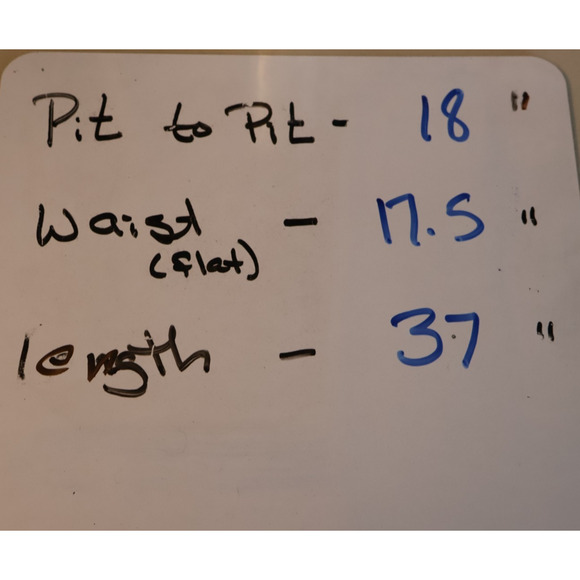 Pit to Pit - 18 "
Waist - 17.5 "
(flat)
length - 37 "